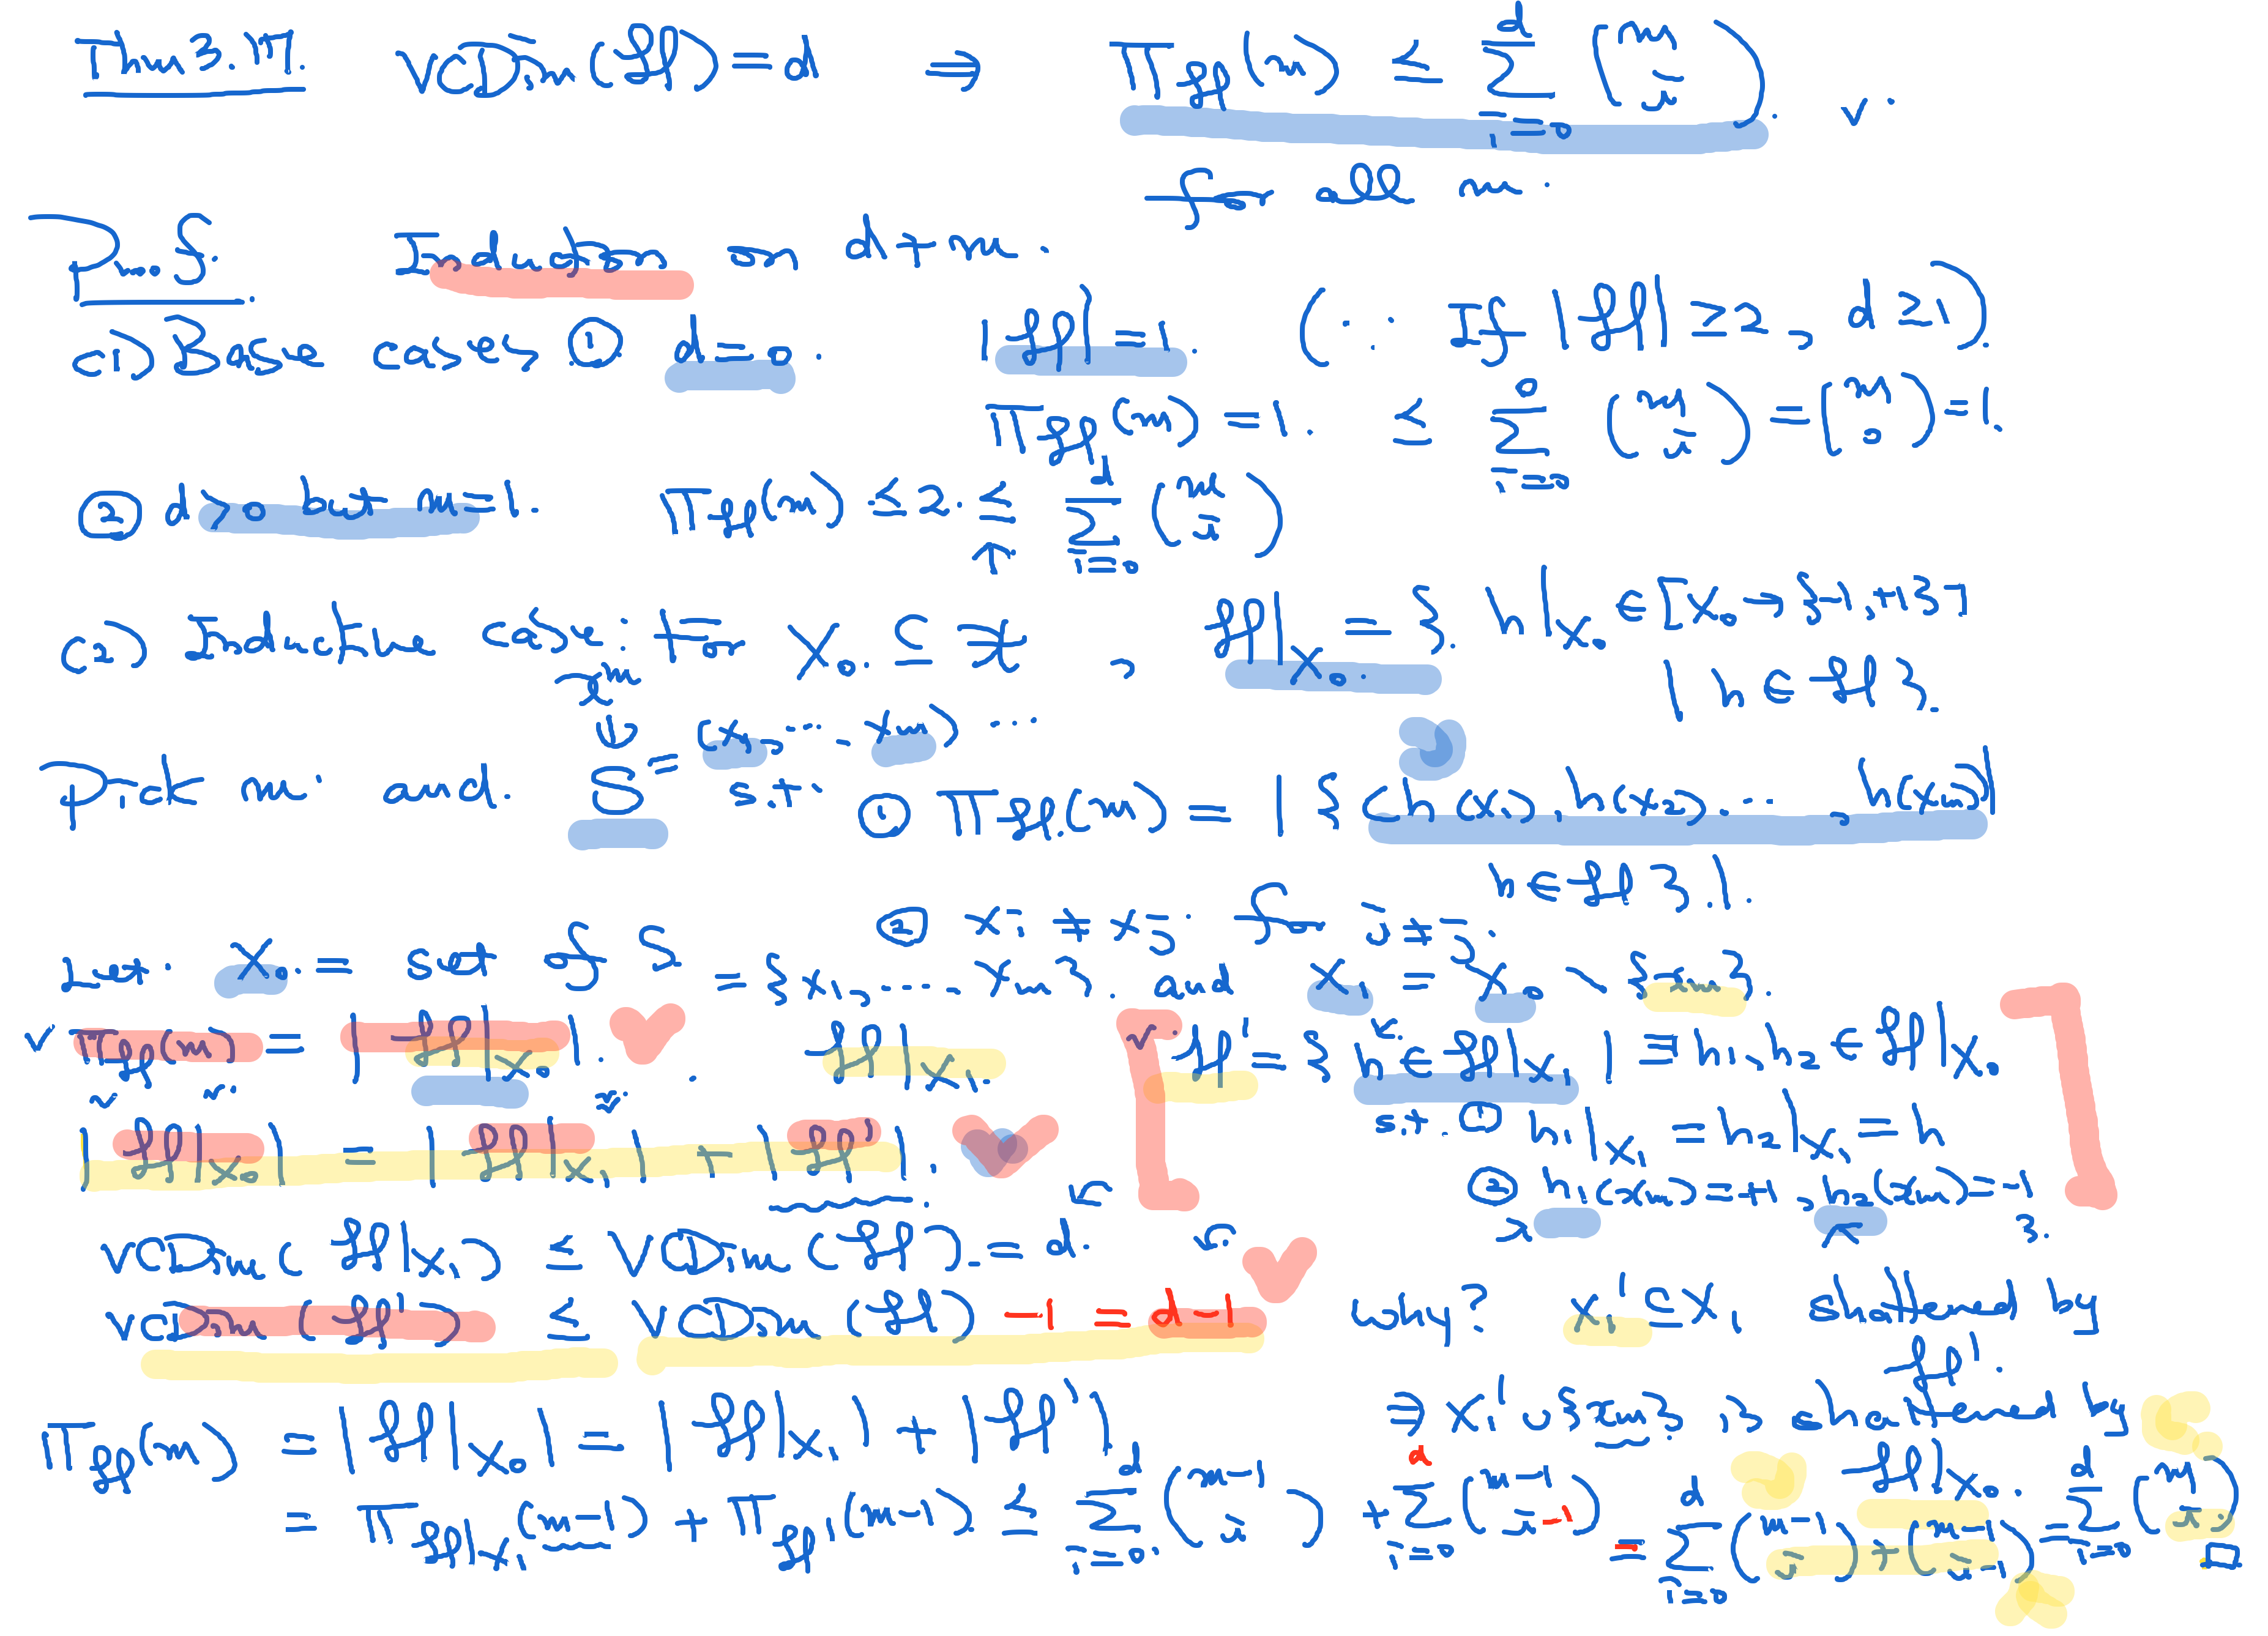 Thm 3.17. VCDim(H) = d ⇒ Π_H(m) ≤ Σ_{i=0}^{d} (m i). ✓.
for all m.
Proof. Induction on d+m.
(1) Base cases ① d=0. |H|=1. (∵ If |H| ≥ 2, d ≥ 1).
Π_H(m) = 1. ≤ Σ_{i=0}^{0} (m i) = (m 0) = 1.
② d>0 but m=1. Π_H(m) ≤ 2 ≤ Σ_{i=0}^{d} (m i)
↑
(2) Inductive case: For X₀ ⊆ X, H|_{X₀} = { h|_{X₀} ∈ [X₀ → {-1,+1}]
| h ∈ H }.
Pick m and S = (x₁, ..., x_m) ∈ X^m s.t. ① Π_H(m) = |{(h(x₁), h(x₂), ..., h(x_m)) |
h ∈ H}|.
② xᵢ ≠ xⱼ for i ≠ j.
Let X₀ = set of S = {x₁, ..., x_m}. and X₁ = X₀ \ {x_m}.
✓ Π_H(m) = |H|_{X₀}|. H|_{X₁} H' = { h ∈ H|_{X₁} | ∃ h₁, h₂ ∈ H|_{X₀}
s.t. ① h₁|_{X₁} = h₂|_{X₁} = h
|H|_{X₀}| = |H|_{X₁}| + |H'|.
② h₁(x_m) = +1, h₂(x_m) = -1 }.
VCDim(H|_{X₁}) ≤ VCDim(H) = d.
VCDim(H') ≤ VCDim(H) -1 = d-1 Why? X₁' ⊆ X₁ shattered by
H'.
⇒ X₁' ∪ {x_m} is shattered by
H|_{X₀}.
Π_H(m) = |H|_{X₀}| = |H|_{X₁}| + |H'|
= Π_{H|_{X₁}}(m-1) + Π_{H'}(m-1) ≤ Σ_{i=0}^{d} (m-1 i) + Σ_{i=0}^{d} (m-1 i-1) = Σ_{i=0}^{d} (m-1 i) + (m-1 i-1) = Σ_{i=0}^{d} (m i) □